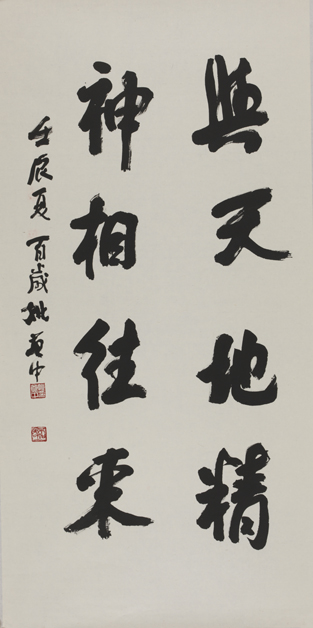 與天地精
神相往来
壬辰夏 百歲姚奠中